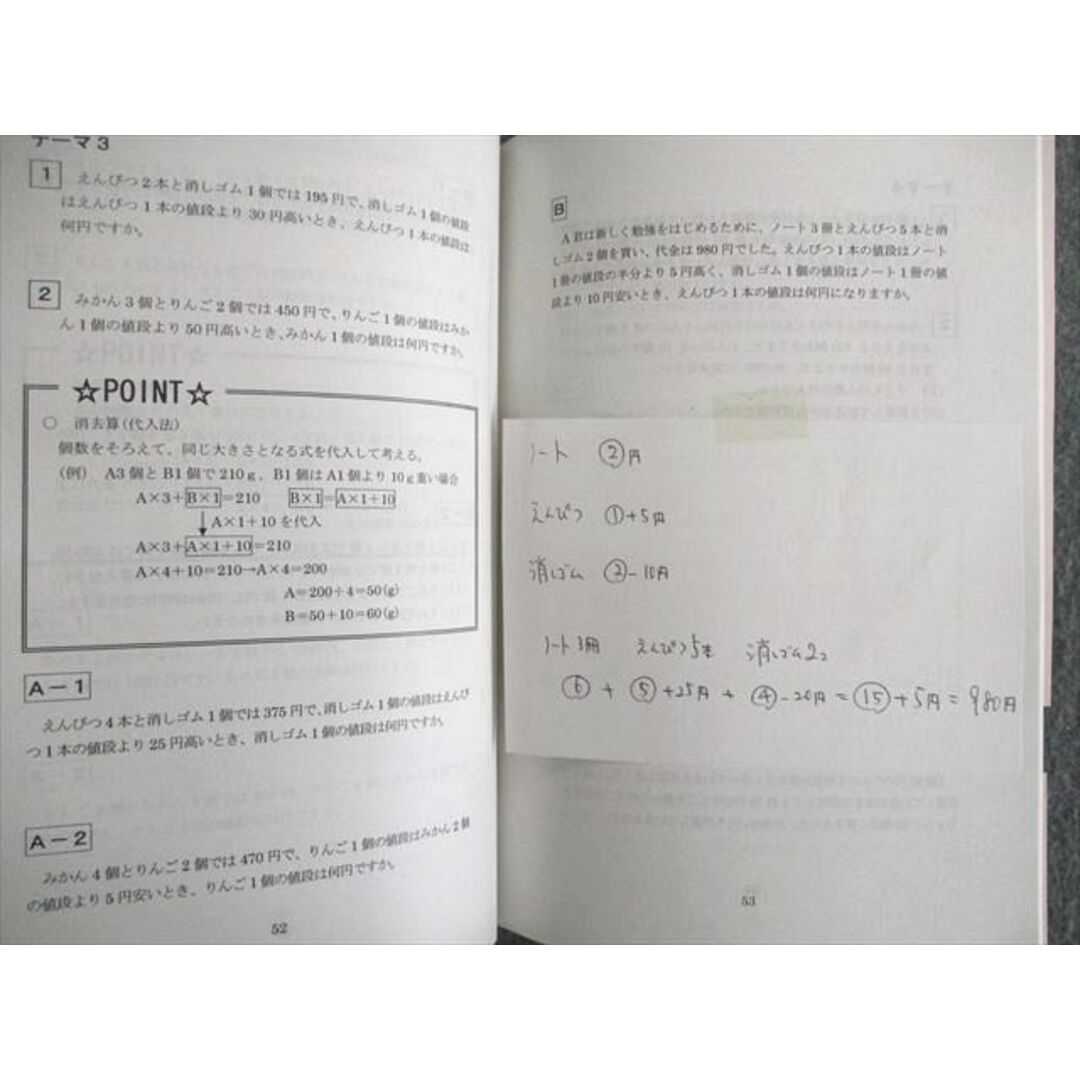 テーマ3
1
えんぴつ2本と消しゴム1個では195円で、消しゴム1個の値段
はえんぴつ1本の値段より30円高いとき、えんぴつ1本の値段は
何円ですか。
2
みかん3個とりんご2個では450円で、りんご1個の値段はみか
ん1個の値段より50円高いとき、みかん1個の値段は何円ですか。
☆POINT☆
○ 消去算(代入法)
個数をそろえて、同じ大きさとなる式を代入して考える。
(例) A3個とB1個で210g、B1個はA1個より10g重い場合
A×3+B×1=210 B×1=A×1+10
↓A×1+10を代入
A×3+A×1+10=210
A×4+10=210→A×4=200
A=200÷4=50(g)
B=50+10=60(g)
A-1
えんぴつ4本と消しゴム1個では375円で、消しゴム1個の値段はえんぴ
つ1本の値段より25円高いとき、消しゴム1個の値段は何円ですか。
A-2
みかん4個とりんご2個では470円で、りんご1個の値段はみかん2個
の値段より5円安いとき、りんご1個の値段は何円ですか。
52
B
A君は新しく勉強をはじめるために、ノート3冊とえんぴつ5本と消
しゴム2個を買い、代金は980円でした。えんぴつ1本の値段はノート
1冊の値段の半分より5円高く、消しゴム1個の値段はノート1冊の値
段より10円安いとき、えんぴつ1本の値段は何円になりますか。
ノート ②円
えんぴつ ①+5円
消しゴム ②-10円
ノート3冊 えんぴつ5本 消しゴム2コ
⑥+⑤+25円+④-20円=⑮+5円=980円
53